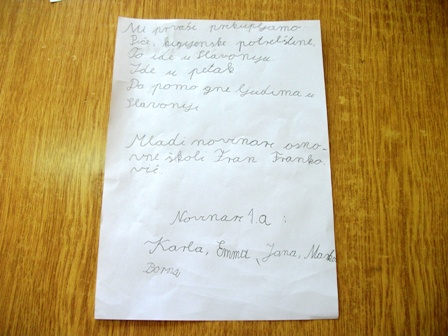 Mi prvaši prikupljamo
Piće, higijenske potrebštine.
To ide u Slavoniju.
Ide u petak
Da pomogne ljudima u
Slavoniji
Mladi novinare osno-
vne školi Fran Franko-
vić
Novinare 1.a :
Karla, Emma, Jana, Marko
Borna